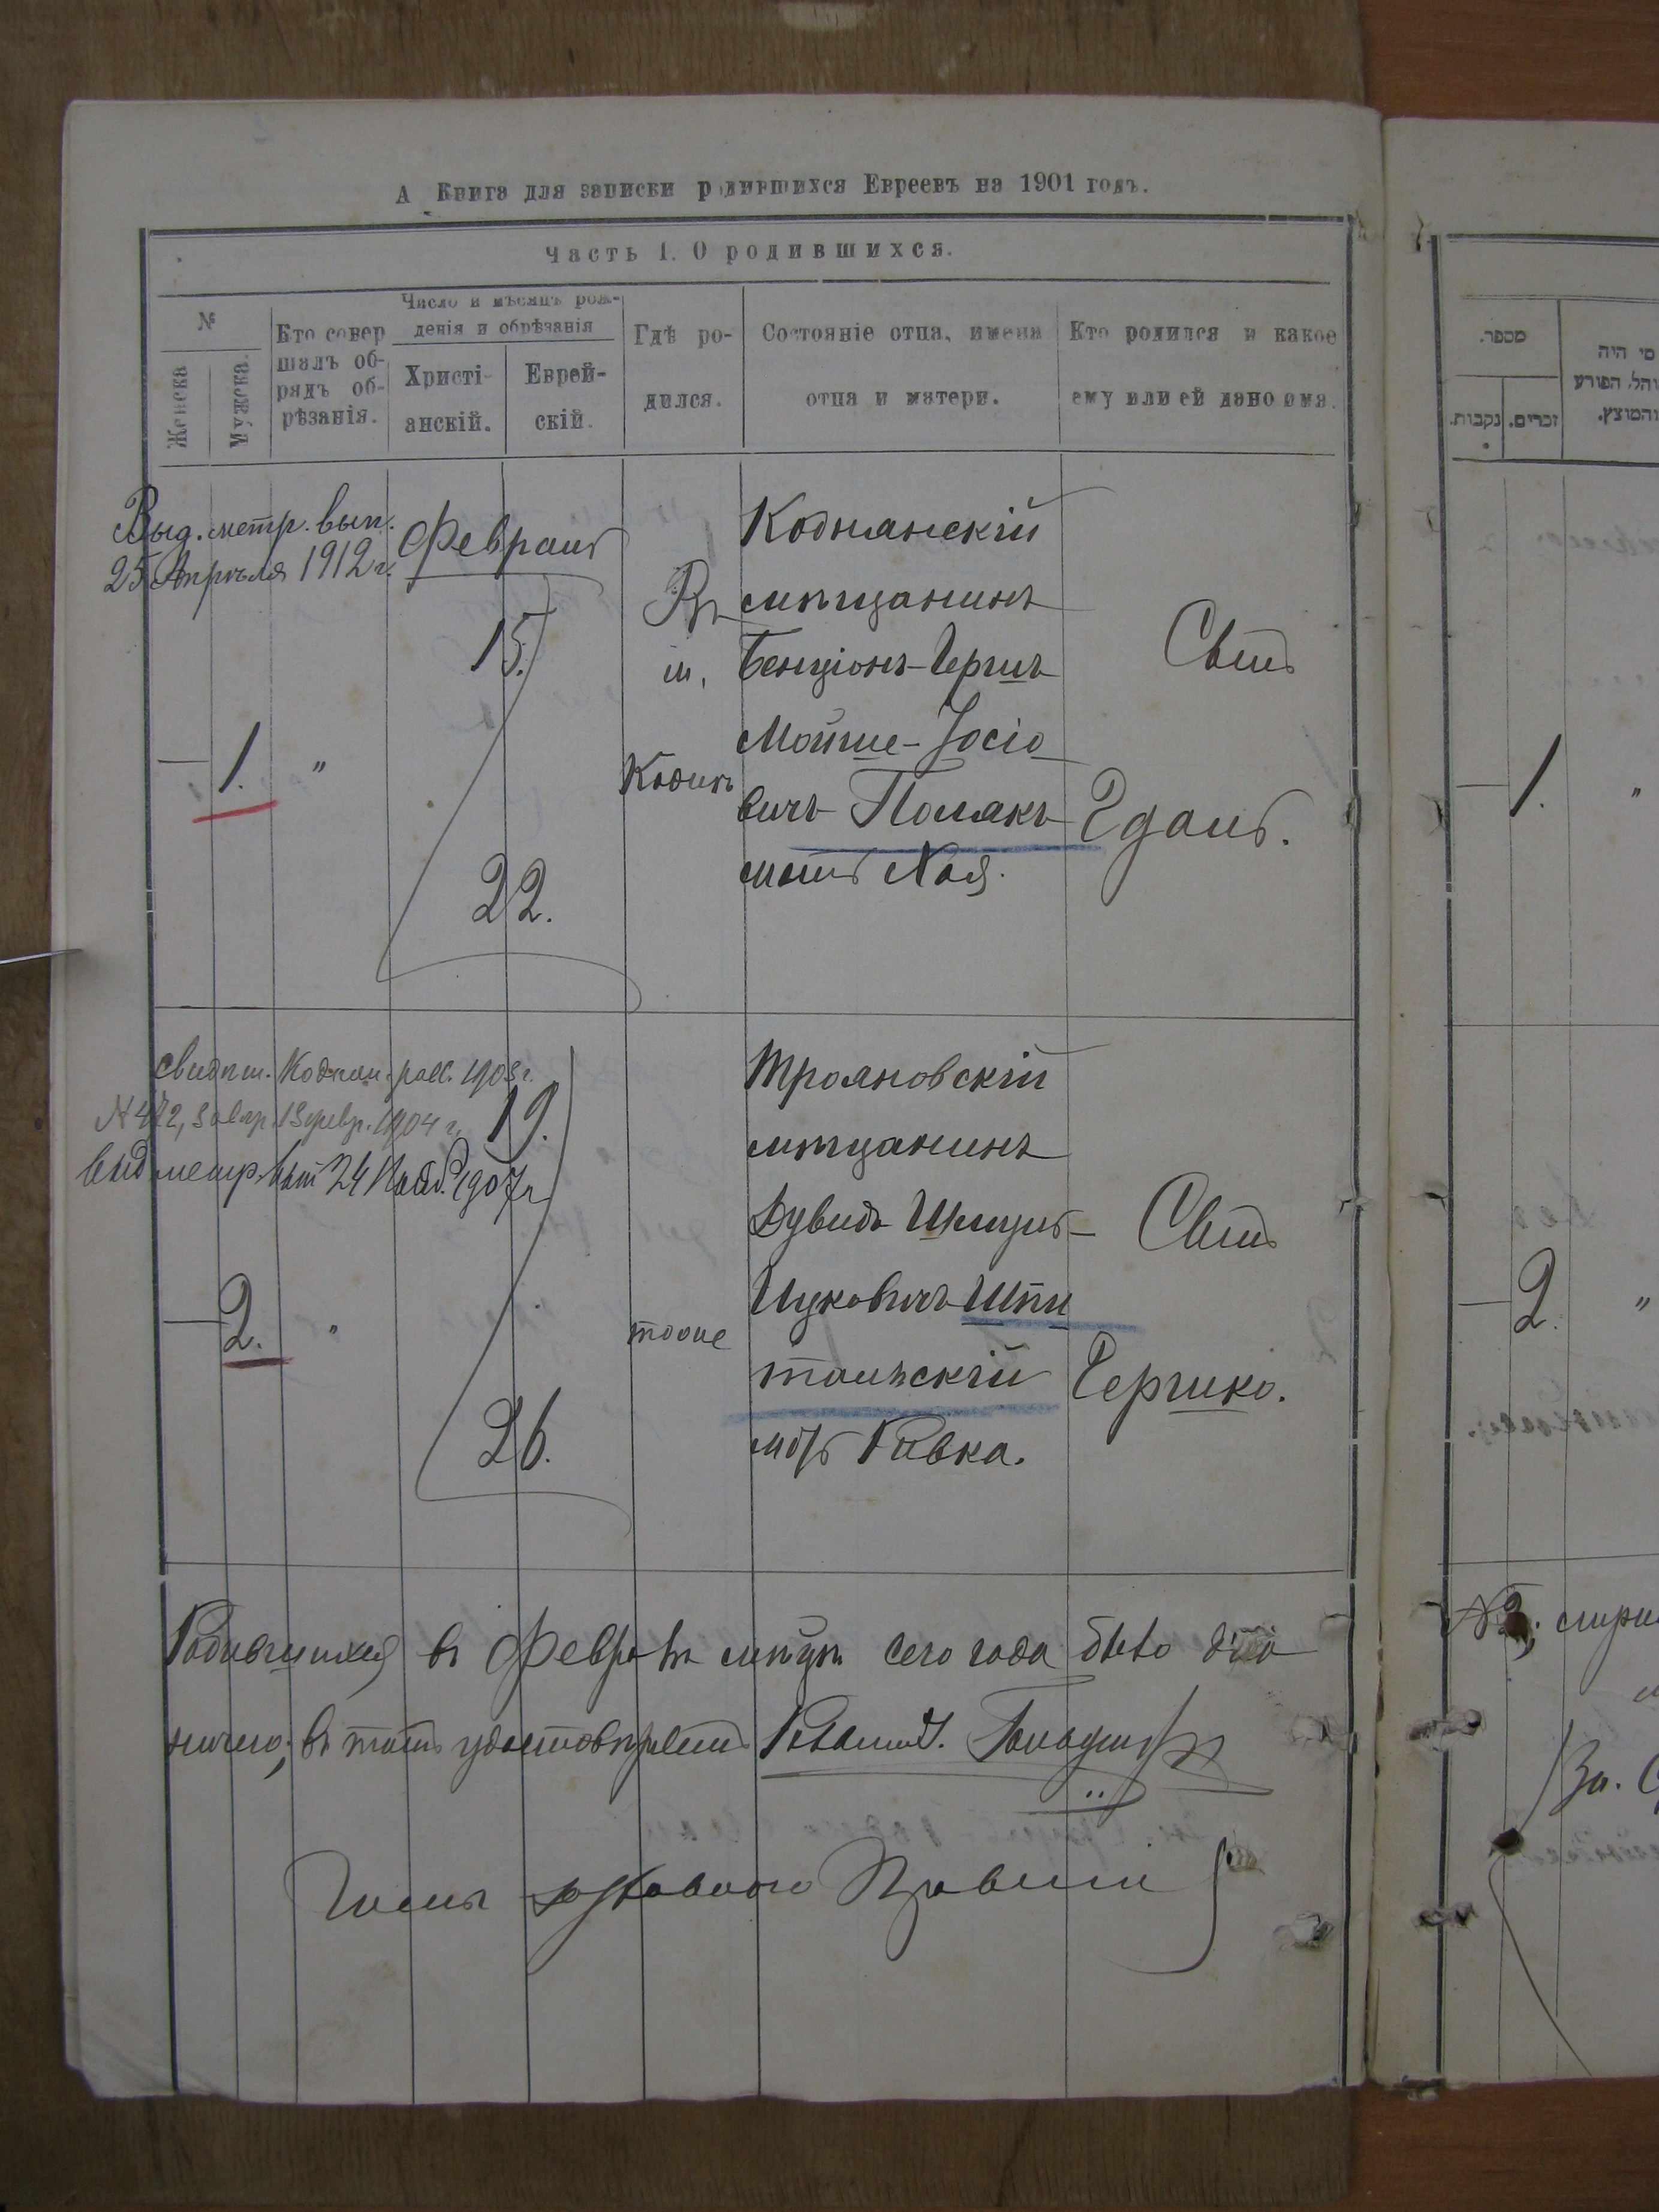 А Книга для записки родившихся Евреевъ на 1901 годъ.
Часть 1. О родившихся.
№
Женска
Мужска.
Кто совер
шалъ об-
рядъ об-
рѣзанія.
Число и мѣсяцъ рож-
денія и обрѣзанія
Христі-
анскій.
Еврей-
скій.
Гдѣ ро-
дился.
Состояніе отца, имена
отца и матери.
Кто родился и какое
ему или ей дано имя.
Выд. метр. вып.
25 Апрѣля 1912 г.
Февраль
15.
22.
— 1. "
Въ
м.
Кодню
Коднянскій
мѣщанинъ
Бенціонъ-Гершъ
Мойше-Іосіо
вичъ Полякъ
мать Хая.
Сынъ
Гдаль.
Свидѣт. Коднян. 1903 г.
1904 г.
выд метр. вып 24 1907 г
19.
26.
— 2. "
тоже
Трояновскій
мѣщанинъ
Дувидъ Шмуль-
Ицковичъ Шпи
тальскій
мать Ривка.
Сынъ
Гершко.
Родившихся въ Февралѣ мѣсяцѣ сего года было два
въ томъ удостовѣряетъ
Членъ духовного Правленія
מספר.
נקבות.
זכרים.
מי היה
והמוצץ.
— 1. "
— 2. "
За.